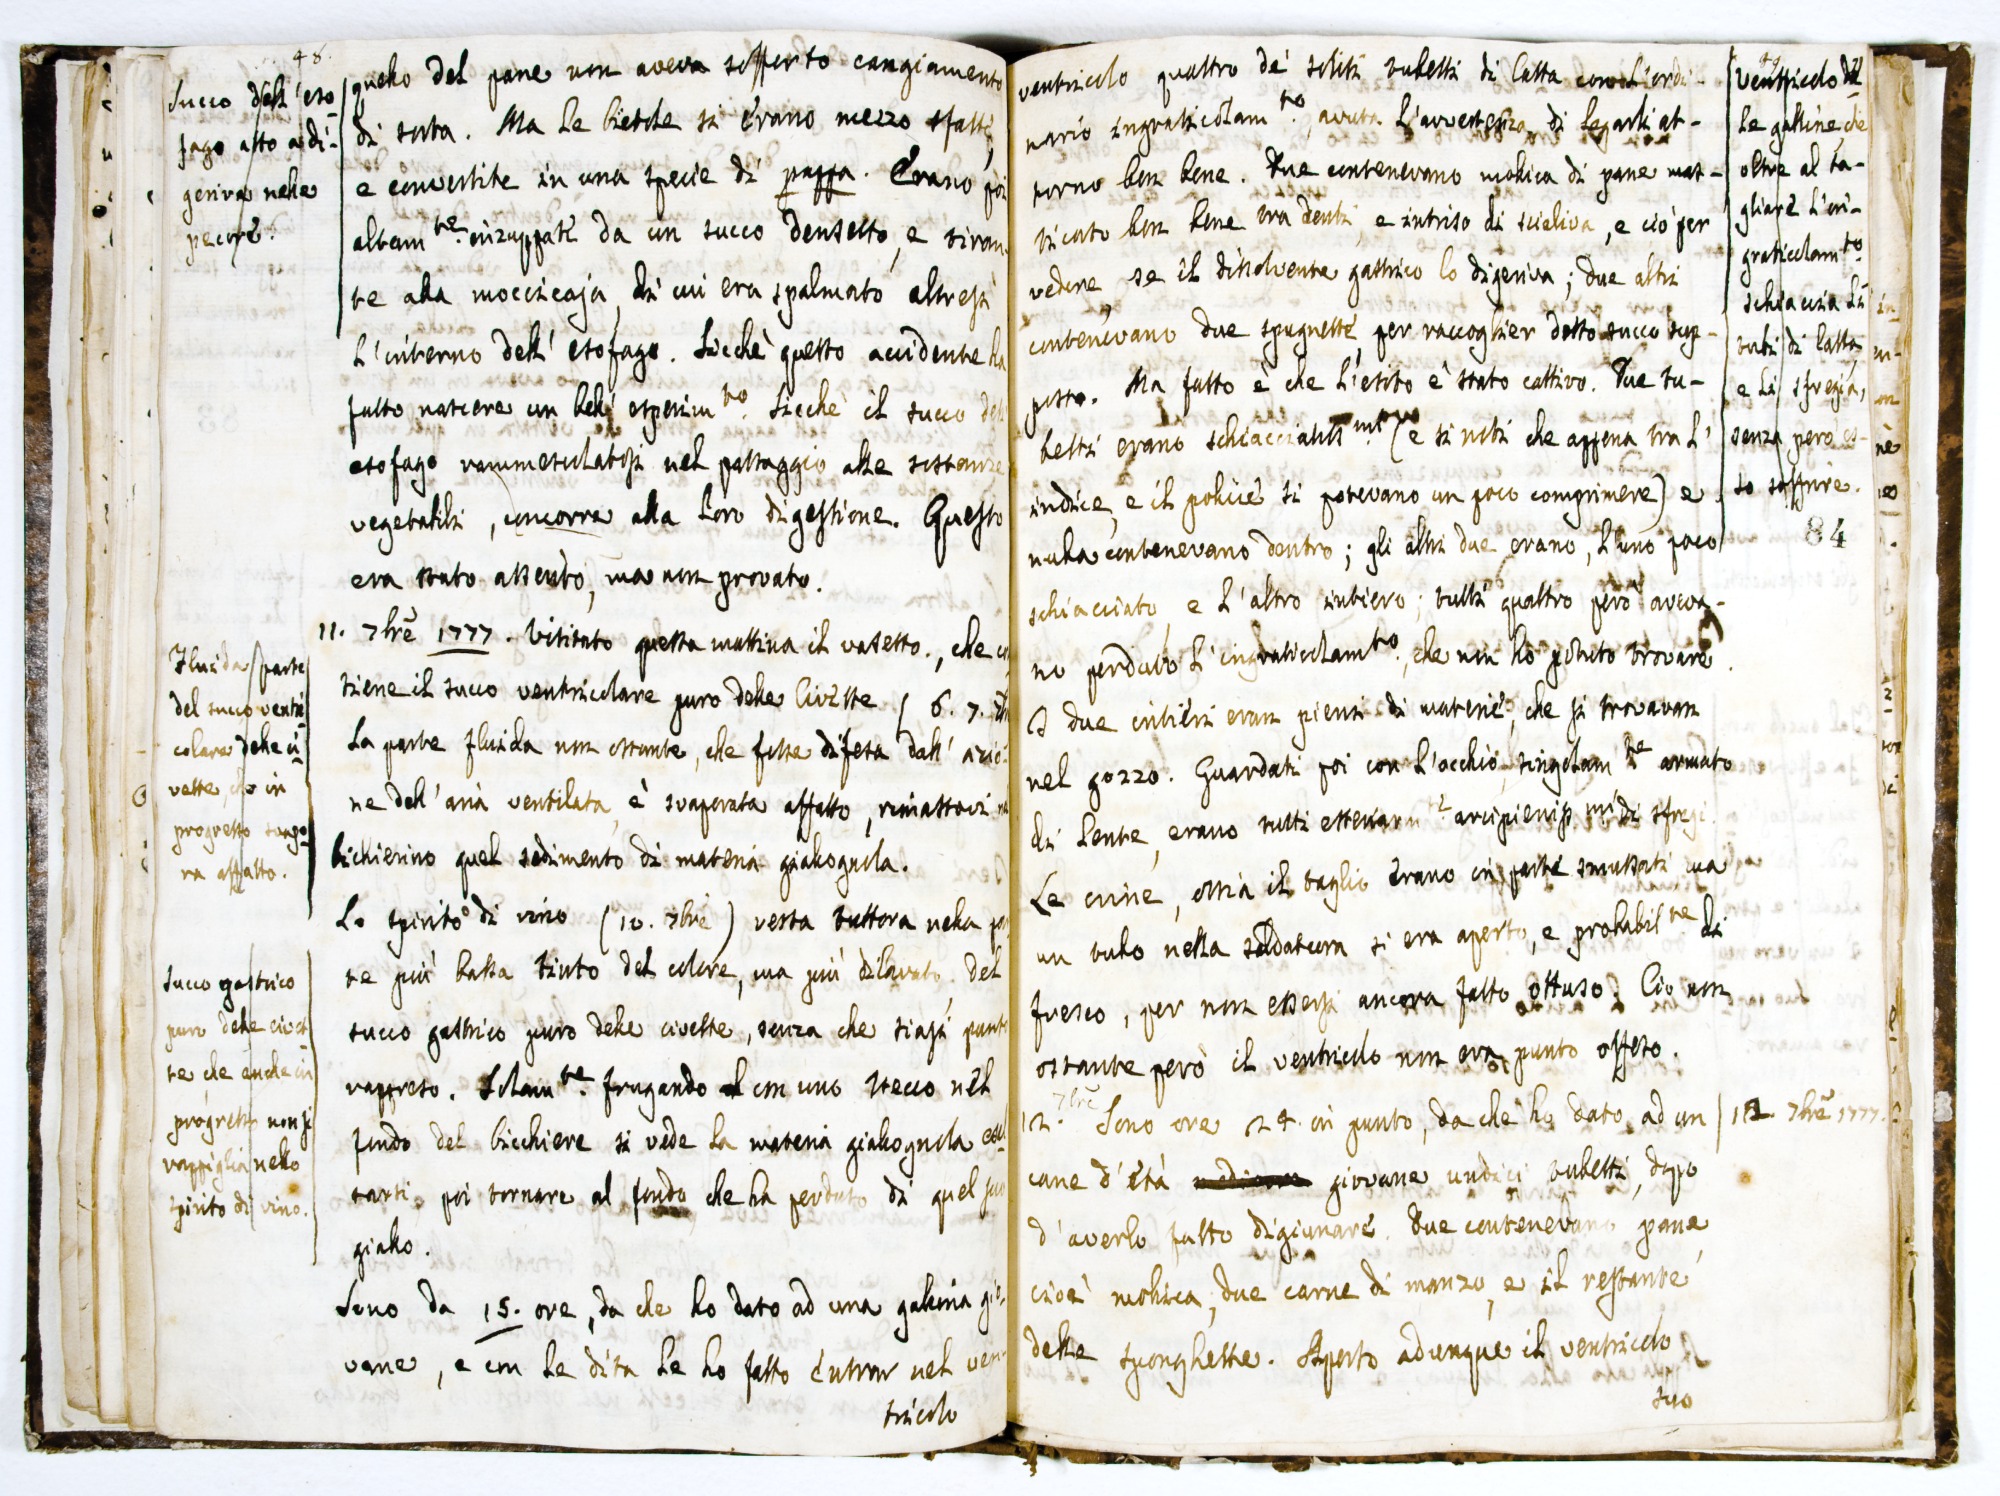 48.
Succo dell' eso-
fago atto a di-
gerire nelle
pecore.
quello del pane non aveva sofferto cangiamento
di sorta. Ma le bietole si erano mezzo sfatte,
e convertite in una specie di pappa. Erano poi
altam.te inzuppate da un succo densetto, e tiran-
te alla moccicaja, di cui era spalmato altresì
l'interno dell' esofago. Sicchè questo accidente ha
fatto nascere un bell' esperim.to. Sicchè il succo dell'
esofago rammescolatosi nel passaggio alle sostanze
vegetabili, concorre alla loro digestione. Questo
era stato asserito, ma non provato.
Fluida parte
del succo ventri-
colare delle ci-
vette, che in
progresso svapo-
ra affatto.
11. 7bre 1777. Visitato questa mattina il vasetto, che con-
tiene il succo ventricolare puro delle Civette ( 6. 7. 7bre
La parte fluida non ostante, che fosse difesa dall' azio-
ne dell' aria ventilata, è svaporata affatto, rimastovi nel
bichierino quel sedimento di materia giallognola.
Succo gastrico
puro delle civet-
te che anche in
progresso non si
rappiglia nello
spirito di vino.
Lo spirito di vino (10. 7bre) resta tuttora nella par-
te più bassa tinto del colore, ma più dilavato, del
succo gastrico puro delle civette, senza che siasi punto
rappreso. Solam.te frugando con uno stecco nel
fondo del bicchiere si vede la materia giallognola
tarsi, poi tornare al fondo, che ha perduto di quel suo
giallo.
Sono da 15. ore, da che ho dato ad una gallina gio-
vane, e con le dita le ho fatto entrar nel ven-
tricolo
ventricolo quattro de' soliti tubetti di latta con l'ordi-
nario ingraticolam.to, avuta l'avvertenza di legarli at-
torno ben bene. Due contenevano mollica di pane mas-
ticato ben bene tra denti, e intriso di scialiva, e ciò per
vedere se il dissolvente gastrico lo digeriva; due altri
contenevano due spugnette, per raccoglier detto succo sup-
posto. Ma fatto è che l'esito è stato cattivo. Due tu-
betti erano schiacciatiss.mi (e si noti che appena tra l'
indice, e il pollice si potevano un poco comprimere) e
nulla contenevano dentro; gli altri due erano, l'uno poco
schiacciato, e l'altro intiero; tutti quattro però aveva-
no perduto l'ingraticolam.to, che non ho potuto trovare.
I due intieri eran pieni di materie, che si trovavan
nel gozzo. Guardati poi con l'occhio, singolam.te armato
di lente, erano tutti esternam.te arcipieniss.mi di sfregi.
Le cime, ossia il taglio erano in parte smussati, ma
un tubo nella saldatura si era aperto, e probabil.te di
fresco, per non essersi ancora fatto ottuso. Ciò non
ostante però il ventricolo non era punto offeso.
Ventricolo del-
le galline che
oltre al ta-
gliare l'in-
graticolam.to
schiaccia li
tubi di latta,
e li sfregia,
senza però es-
so soffrire.
84
12. 7bre Sono ore 24. in punto, da che ho dato ad un
12. 7bre 1777.
cane d'età giovane undici tubetti, dopo
d'averlo fatto digiunare. Due contenevano pane,
cioè mollica, due carne di manzo, e il restante
delle sponghette. Aperto adunque il ventricolo
suo